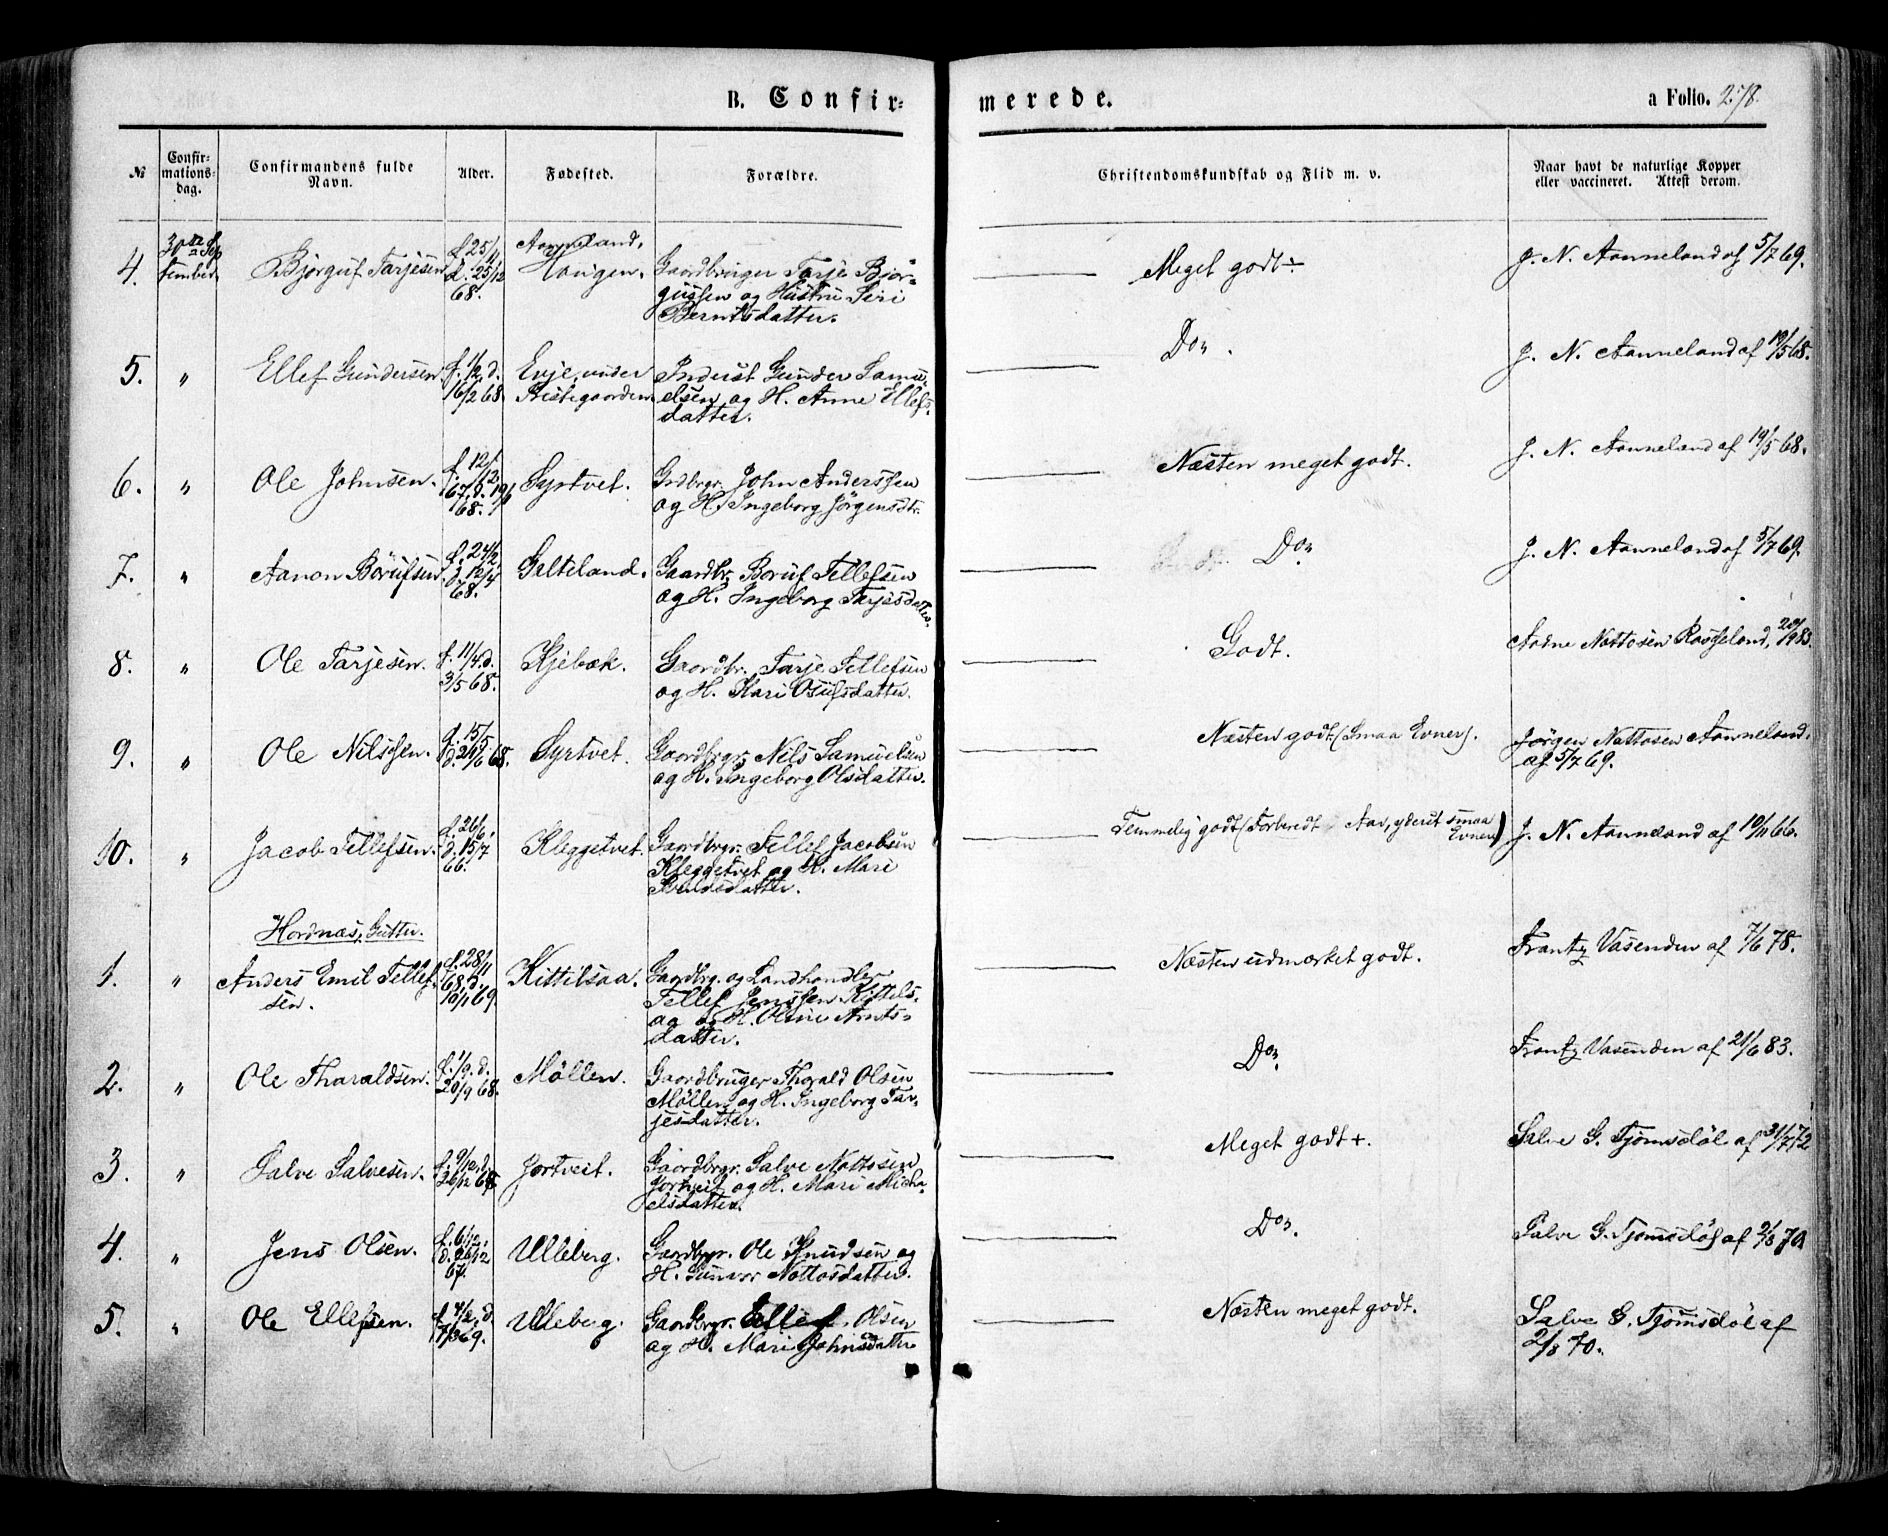 B. Confir-
merede.
a Folio. 278.
№
Confir-
mations-
dag.
Confirmandens fulde
Navn.
Alder.
Fødested.
Forældre.
Christendomskundskab og Flid m. v.
Naar havt de naturlige Kopper
eller vaccineret. Attest derom.
4.
30te Sep
tember.
Bjørguf Tarjesen
f. 25/11
d. 25/12
68.
Aanneland,
Haugen.
Gaardbruger Tarje Bjør-
gufsen og Hustru Siri
Berntsdatter.
Meget godt ÷
J. N. Aanneland af 5/7 69.
5.
"
Ellef Gundersen
f. 1/2, d.
16/2 68
Evje, under
Prestegaarden.
Inderst Gunder Samu-
elsen og H. Anne Ellefs-
datter.
Do.
J. N. Aanneland af 19/5 68.
6.
"
Ole Johnsen.
f. 12/12
67, d. 19/1
68.
Syrtvet.
Grdbrgr. John Anderssen
og H. Ingeborg Jörgensdtr.
Næsten meget godt.
J. N. Aanneland af 19/5 68.
7.
"
Aanon Böruf sen.
f. 24/2
d. 12/4
68.
Galteland.
Gaardbr. Boruf Tellefsen
og H. Ingeborg Tarjesdatter.
Do.
J. N. Aanneland af 5/7 69.
8.
"
Ole Tarjesen.
f. 11/4. d.
3/5 68.
Kjebæk.
Gaardbr. Tarje Tellefsen
og H. Kari Osufsdatter.
Godt.
Nattosen Rosseland, 83.
9.
"
Ole Nilssen.
f. 15/5
d. 21/6 68.
Syrtvet.
Gaardbrgr. Nils Samuelsen
og H. Ingeborg Olsdatter.
Næsten godt (Smaa Evner).
Jörgen Nattosen Aanneland.
af 5/7 69.
10.
"
Jacob Tellefsen.
f. 26/6,
d. 15/7
66.
Kleggetvet.
Gaardbrgr. Tellef Jacobsen
Kleggetvet og H. Mari
Temmelig godt (Forberedt Aar, yderst smaa
Evner)
J. N. Aanneland af 19/11 66.
Hordnæs, Gutter.
1.
"
Anders Emil Tellef-
sen.
f. 28/11
68. d.
10/1 69
Kittilsaa.
Gaardbrg. og Landhandler
Tellef Jenssen Kittils-
aa og H. Oline Arnts-
datter.
Næsten udmærket godt.
Frantz Vasenden af 7/6 78.
2.
"
Ole Tharaldsen.
f. 1/9. d.
20/9 68.
Möllen.
Gaardbruger Tharald Olsen
Möllen og H. Ingeborg Tar-
jesdatter.
Do.
Frantz Vasenden af 21/6 83.
3.
"
Salve Salvesen.
f. 9/12. d.
26/12 68.
Jortveit.
Gaardbrgr. Salve Nottosen
Jortveit og H. Mari Micha-
elsdatter.
Meget godt +.
Salve G. Tjömsdöl af 31/7 72
4.
"
Jens Olsen.
f. 6/12.
d. 26/12
67.
Ulleberg.
Gaardbgr. Ole Knudsen og
H. Gunvor Nottosdatter.
Do.
Salve G. Tjömsdöl af 2/8 70
5.
"
Ole Ellefsen.
f. 4/2, d.
7/3 69.
Ulleberg.
Gaardbrgr. Ellef Olsen
og H. Mari Johnsdatter
Næsten meget godt.
Salve G. Tjömsdöl af
2/8 70.